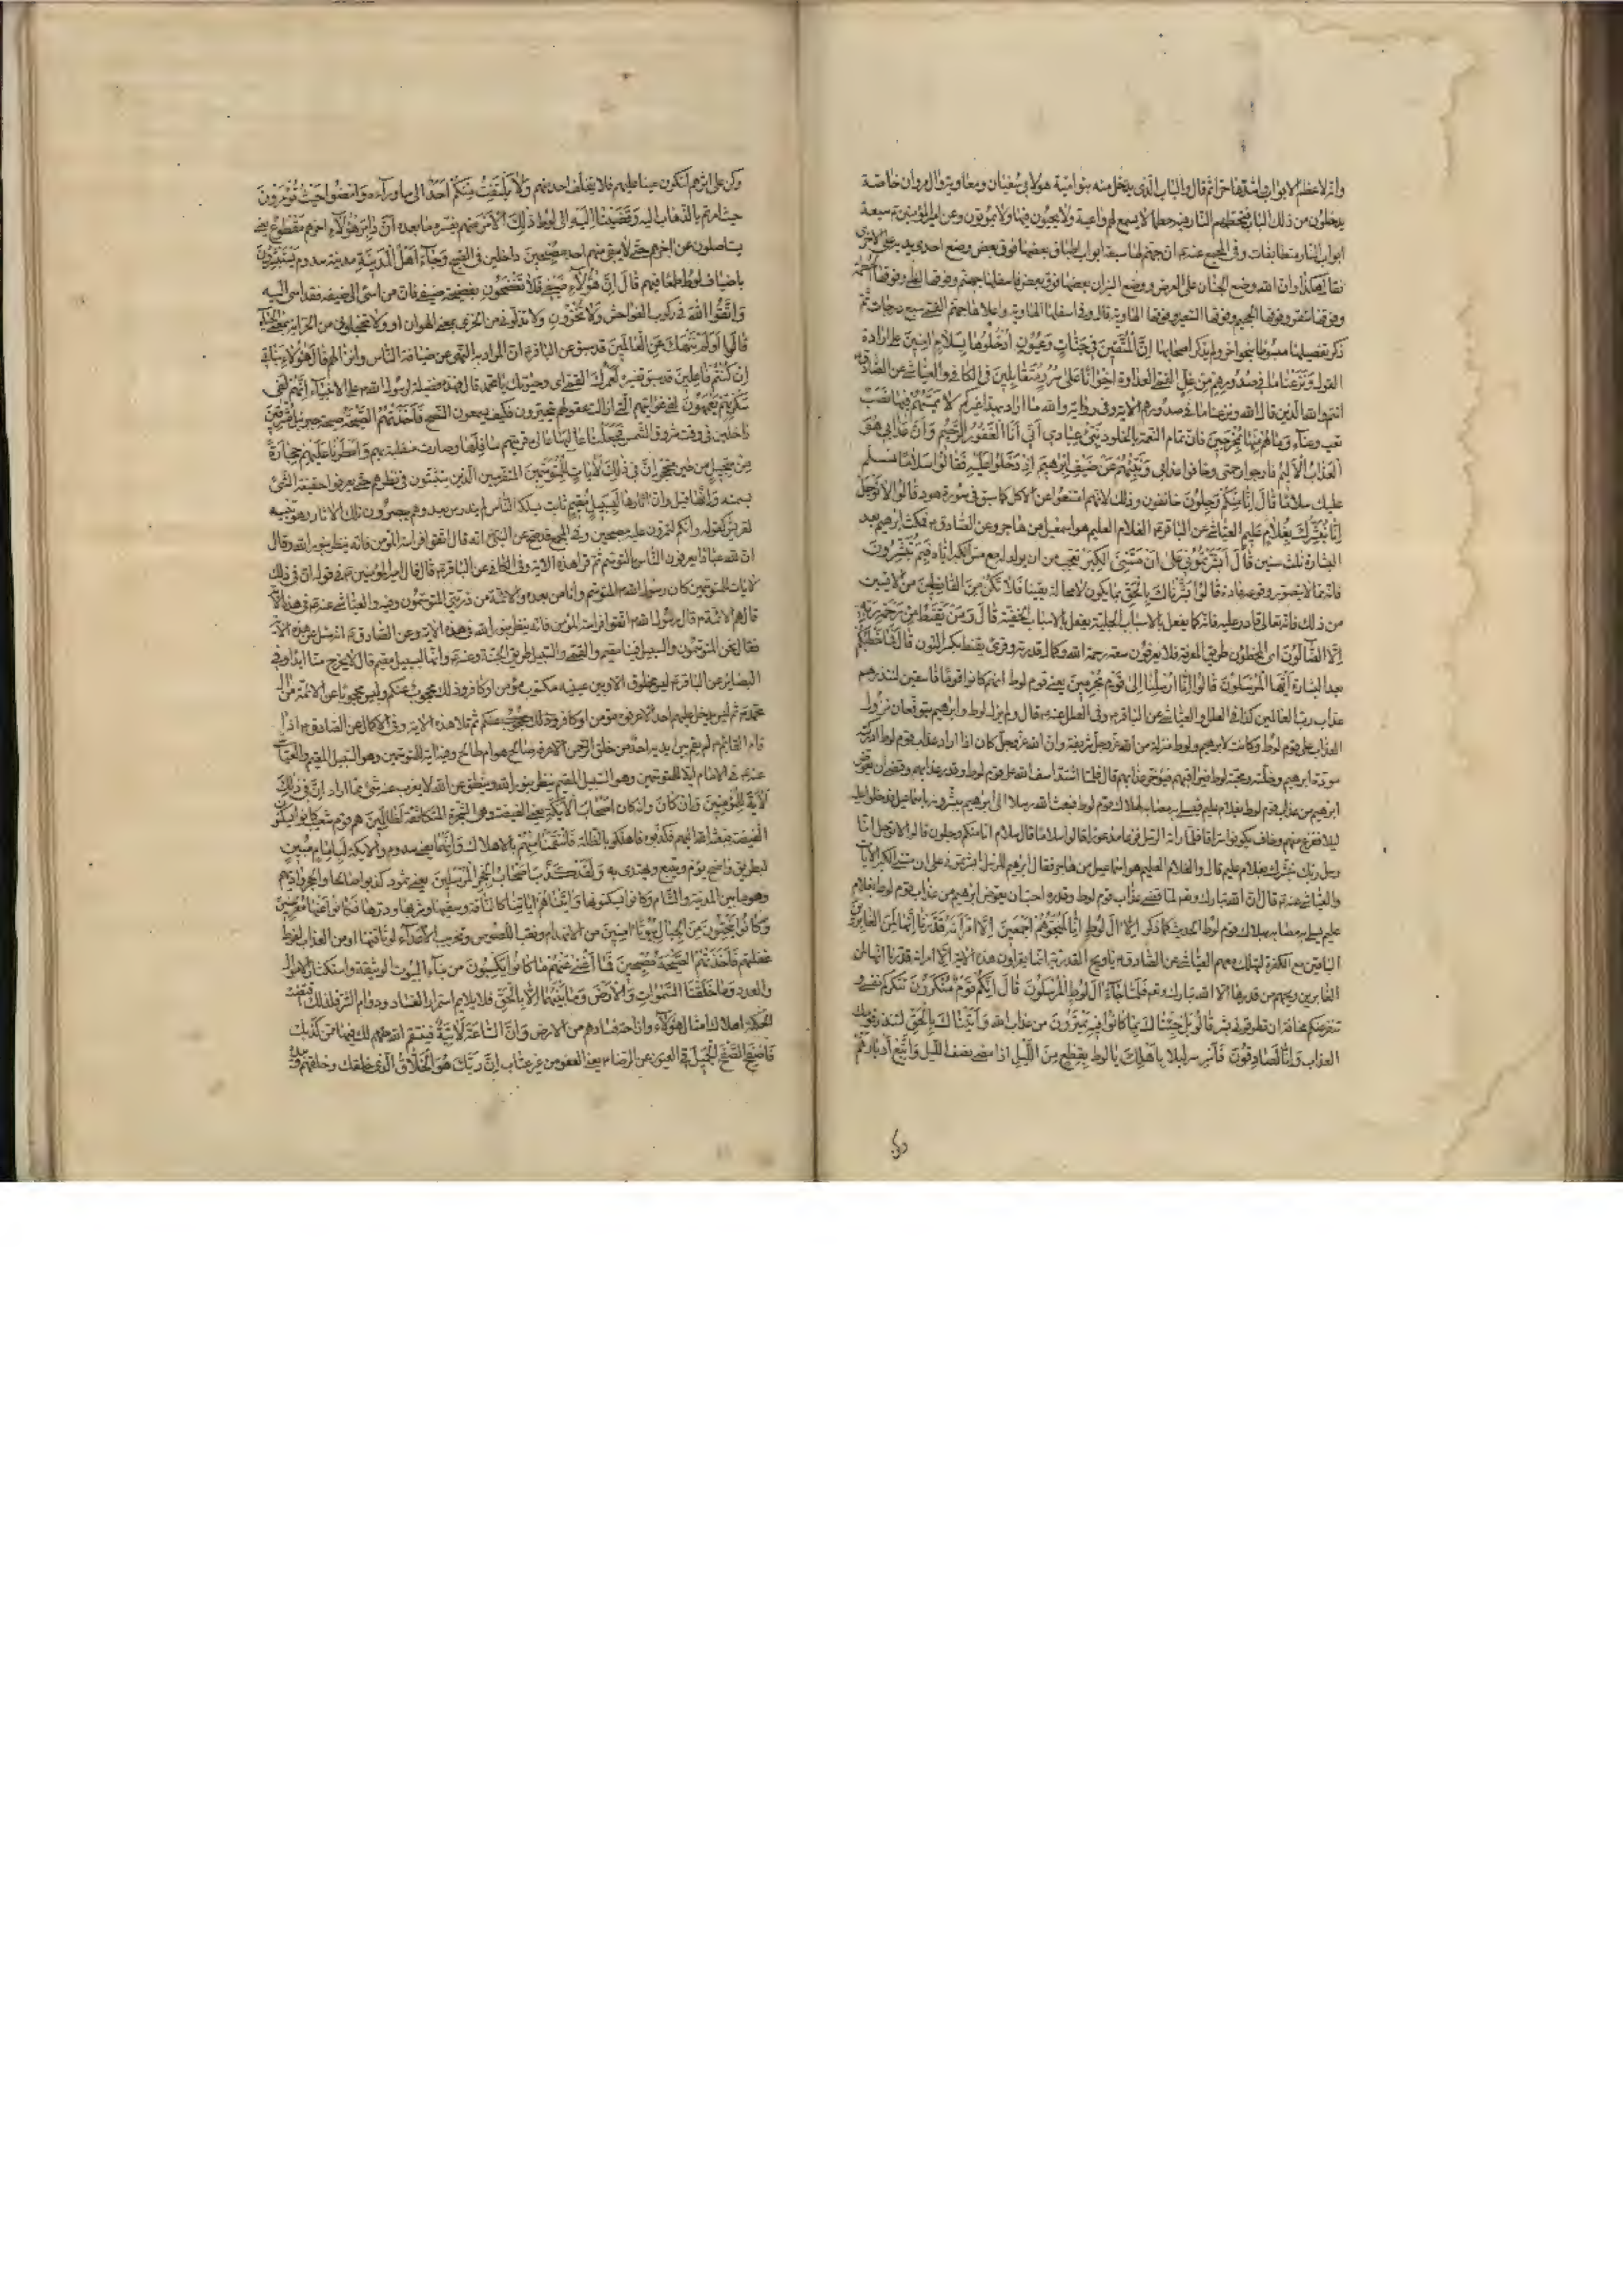 وانه لاعظم الابواب واشدها حرا ثم قال والباب الذى يدخل منه بنو امية هو لابى سفيان ومعاوية وال مروان خاصة
يدخلون من ذلك الباب فيحطمهم النار فيه حطما لا يسمع لهم واعية ولا يحيون فيها ولا يموتون وعن امير المؤمنين سبعة
ابواب النار متطابقات وفى المجمع عنه ان جهنم لها سبعة ابواب اطباق بعضها فوق بعض ووضع احدى يديه على الاخرى
فقال هكذا وان الله وضع الجنان على العرض ووضع النيران بعضها فوق بعض فاسفلها جهنم وفوقها لظى وفوقها الحطمة
وفوقها سقر وفوقها الجحيم وفوقها السعير وفوقها الهاوية قال وفى اسفلها الهاوية واعلاها جهنم القمى سبع درجات ثم
ذكر تفصيلها مبسوطا بنحو اخر ولم يذكر اصحابها اِنَّ الْمُتَّقِينَ فِي جَنَّاتٍ وَعُيُونٍ اُدْخُلُوهَا بِسَلَامٍ اٰمِنِينَ على ارادة
القول وَنَزَعْنَا مَا فِي صُدُورِهِمْ مِنْ غِلٍّ القمى العداوة اِخْوَانًا عَلَى سُرُرٍ مُتَقَابِلِينَ فى الكافى والعياشى عن الصادق
انتم والله الذين قال الله ونزعنا ما فى صدورهم الاية وفى رواية والله ما اراد بهذا غيركم لَا يَمَسُّهُمْ فِيهَا نَصَبٌ
تعب وعناء وَمَا هُمْ مِنْهَا بِمُخْرَجِينَ فان تمام النعمة بالخلود نَبِّئْ عِبَادِي اَنِّي اَنَا الْغَفُورُ الرَّحِيمُ وَاَنَّ عَذَابِي هُوَ
الْعَذَابُ الْاَلِيمُ فارجوا رحمتى وخافوا عذابى وَنَبِّئْهُمْ عَنْ ضَيْفِ اِبْرٰهِيمَ اِذْ دَخَلُوا عَلَيْهِ فَقَالُوا سَلَامًا نسلم
عليك سلاما قَالَ اِنَّا مِنْكُمْ وَجِلُونَ خائفون وذلك لانهم امتنعوا عن الاكل كما سبق فى سورة هود قَالُوا لَا تَوْجَلْ
اِنَّا نُبَشِّرُكَ بِغُلَامٍ عَلِيمٍ العياشى عن الباقر الغلام العليم هو اسمعيل من هاجر وعن الصادق فمكث ابرهيم بعد
البشارة ثلث سنين قَالَ اَبَشَّرْتُمُونِي عَلَى اَنْ مَسَّنِيَ الْكِبَرُ تعجب من ان يولد له مع مس الكبر اياه فَبِمَ تُبَشِّرُونَ
فانه مما لا يتصور وقوعه عادة قَالُوا بَشَّرْنَاكَ بِالْحَقِّ بما يكون لا محالة يقينا فَلَا تَكُنْ مِنَ الْقَانِطِينَ من الايسين
من ذلك فانه تعالى قادر عليه فانه كما يفعل بالاسباب الجلية يفعل بالاسباب الخفية قَالَ وَمَنْ يَقْنَطُ مِنْ رَحْمَةِ رَبِّهِ
اِلَّا الضَّالُّونَ اى المخطئون طريق المعرفة فلا يعرفون سعة رحمة الله وكمال قدرته وقرئ يقنط بكسر النون قَالَ فَمَا خَطْبُكُمْ
بعد البشارة اَيُّهَا الْمُرْسَلُونَ قَالُوا اِنَّا اُرْسِلْنَا اِلَى قَوْمٍ مُجْرِمِينَ يعنى قوم لوط انهم كانوا قوما فاسقين لننذرهم
عذاب رب العالمين كذا فى العلل والعياشى عن الباقر وفى العلل عنه قال ولم يزل لوط وابرهيم يتوقعان نزول
العذاب على قوم لوط وكانت لابرهيم ولوط منزلة من الله عز وجل شريفة وان الله عز وجل كان اذا اراد عذاب قوم لوط ادركته
مودة ابرهيم وخلته ومحبة لوط فيراقبهم فيؤخر عذابهم قال فلما اشتد اسف الله على قوم لوط وقدر عذابهم وقضى ان يعوض
ابرهيم من عذاب قوم لوط بغلام عليم فيسلى به مصابه بهلاك قوم لوط فبعث الله رسلا الى ابرهيم يبشرونه باسماعيل فدخلوا عليه
ليلا ففزع منهم وخاف ان يكونوا سراقا فلما راته الرسل فزعا مذعورا قالوا سلاما قال سلام انا منكم وجلون قالوا لا توجل انا
رسل ربك نبشرك بغلام عليم قال والغلام العليم هو اسماعيل من هاجر فقال ابرهيم للرسل ابشرتمونى على ان مسنى الكبر الايات
والعياشى عنه قال ان الله تبارك وتعالى لما قضى عذاب قوم لوط وقدره احب ان يعوض ابرهيم من عذاب قوم لوط بغلام
عليم يسلى به مصابه بهلاك قوم لوط الحديث كما ذكر اِلَّا اٰلَ لُوطٍ اِنَّا لَمُنَجُّوهُمْ اَجْمَعِينَ اِلَّا امْرَاَتَهُ قَدَّرْنَا اِنَّهَا لَمِنَ الْغَابِرِينَ
الباقين مع الكفرة لتهلك معهم العياشى عن الصادق يا ويح القدرية انما يقرأون هذه الاية الا امرأته قدرنا انها لمن
الغابرين ويحهم من قدرها الا الله تبارك وتعالى فَلَمَّا جَاۤءَ اٰلَ لُوطٍ الْمُرْسَلُونَ قَالَ اِنَّكُمْ قَوْمٌ مُنْكَرُونَ تنكركم نفسى و
تنفر عنكم مخافة ان تطرقونى بشر قَالُوا بَلْ جِئْنَاكَ بِمَا كَانُوا فِيهِ يَمْتَرُونَ من عذاب الله وَاَتَيْنَاكَ بِالْحَقِّ لتنذر قومك
العذاب وَاِنَّا لَصَادِقُونَ فَاَسْرِ سر ليلا بِاَهْلِكَ يا لوط بِقِطْعٍ مِنَ اللَّيْلِ اذا مضى نصف الليل وَاتَّبِعْ اَدْبَارَهُمْ
وكن على اثرهم لتكون عينا عليهم فلا يتخلف احد منهم وَلَا يَلْتَفِتْ مِنْكُمْ اَحَدٌ الى ما وراءه وَامْضُوا حَيْثُ تُؤْمَرُونَ
حيث امرتم بالذهاب اليه وَقَضَيْنَا اِلَيْهِ الى لوط ذٰلِكَ الْاَمْرَ مبهم يفسره ما بعده اَنَّ دَابِرَ هٰؤُلَاۤءِ اخرهم مَقْطُوعٌ يعنى
يستاصلون عن اخرهم حتى لا يبقى منهم احد مُصْبِحِينَ داخلين فى الصبح وَجَاۤءَ اَهْلُ الْمَدِينَةِ مدينة سدوم يَسْتَبْشِرُونَ
باضياف لوط طمعا فيهم قَالَ اِنَّ هٰؤُلَاۤءِ ضَيْفِي فَلَا تَفْضَحُونِ بفضيحة ضيفى فان من اسئ الى ضيفه فقد اسئ اليه
وَاتَّقُوا اللهَ فى ركوب الفواحش وَلَا تُخْزُونِ ولا تذلونى من الخزى بمعنى الهوان او ولا تخجلونى من الخزاية بمعنى الحياء
قَالُوا اَوَلَمْ نَنْهَكَ عَنِ الْعَالَمِينَ قد سبق عن الباقر ان المراد به النهى عن ضيافة الناس وانزالهم قَالَ هٰؤُلَاۤءِ بَنَاتِي
اِنْ كُنْتُمْ فَاعِلِينَ قد سبق تفسيره لَعَمْرُكَ القمى اى وحيوتك يا محمد قال فهذه فضيلة لرسول الله على الانبياء اِنَّهُمْ لَفِي
سَكْرَتِهِمْ يَعْمَهُونَ لفى غوايتهم التى ازالت عقولهم يتحيرون فكيف يسمعون النصح فَاَخَذَتْهُمُ الصَّيْحَةُ صيحة جبرئيل مُشْرِقِينَ
داخلين فى وقت شروق الشمس فَجَعَلْنَا عَالِيَهَا عالى قريتهم سَافِلَهَا وصارت منقلبة بهم وَاَمْطَرْنَا عَلَيْهِمْ حِجَارَةً
مِنْ سِجِّيلٍ من طين متحجر اِنَّ فِي ذٰلِكَ لَاٰيَاتٍ لِلْمُتَوَسِّمِينَ المتفرسين الذين يتثبتون فى نظرهم حتى يعرفوا حقيقة الشئ
بسمته وَاِنَّهَا قيل وان اثارها لَبِسَبِيلٍ مُقِيمٍ ثابت يسلكه الناس لم يندرس بعد وهم يبصرون تلك الاثار وهو تنبيه
لقريش كقوله وانكم لتمرون عليهم مصبحين وفى المجمع قد صح عن النبى انه قال اتقوا فراسة المؤمن فانه ينظر بنور الله وقال
ان لله عبادا يعرفون الناس بالتوسم ثم قرأ هذه الاية وفى الكافى عن الباقر قال قال امير المؤمنين فى قوله ان فى ذلك
لايات للمتوسمين كان رسول الله المتوسم وانا من بعده والائمة من ذريتى المتوسمون وفيه والعياشى عنه فى هذه الاية
قال هم الائمة قال رسول الله اتقوا فراسة المؤمن فانه ينظر بنور الله فى هذه الاية وعن الصادق انه سئل عن هذه الاية
فقال نحن المتوسمون والسبيل فينا مقيم والقمى والسبيل طريق الجنة وعنه وانها لبسبيل مقيم قال لا يخرج منا ابدا وفى
البصائر عن الباقر ليس مخلوق الا وبين عينيه مكتوب مؤمن او كافر وذلك محجوب عنكم وليس محجوبا عن الائمة من ال
محمد ثم ليس يدخل عليهم احد الا عرفوه مؤمن او كافر وذلك محجوب عنكم ثم تلا هذه الاية وفى الاكمال عن الصادق اذا
قام القائم لم يقم بين يديه احد من خلق الرحمن الا عرفه صالح هو ام طالح وفيه اية للمتوسمين وهو السبيل المقيم والعياشى
عنه فى الامام اية للمتوسمين وهو السبيل المقيم ينظر بنور الله وينطق عن الله لا يعزب عنه شئ مما اراد اِنَّ فِي ذٰلِكَ
لَاٰيَةً لِلْمُؤْمِنِينَ وَاِنْ كَانَ وانه كان اَصْحَابُ الْاَيْكَةِ يعنى الغيضة وهى الشجرة المتكاثفة لَظَالِمِينَ هم قوم شعيب كانوا يسكنون
الغيضة فبعثه الله اليهم فكذبوه فاهلكوا بالظلة فَانْتَقَمْنَا مِنْهُمْ بالاهلاك وَاِنَّهُمَا يعنى سدوم والايكة لَبِاِمَامٍ مُبِينٍ
لبطريق واضح يؤم ويتبع ويهتدى به وَلَقَدْ كَذَّبَ اَصْحَابُ الْحِجْرِ الْمُرْسَلِينَ يعنى ثمود كذبوا صالحا والحجر واديهم
وهو ما بين المدينة والشام وكانوا يسكنونها وَاٰتَيْنَاهُمْ اٰيَاتِنَا كالناقة وسقيها وشربها ودرها فَكَانُوا عَنْهَا مُعْرِضِينَ
وَكَانُوا يَنْحِتُونَ مِنَ الْجِبَالِ بُيُوتًا اٰمِنِينَ من الانهدام ونقب اللصوص وتخريب الاعداء لوثاقتها او من العذاب لفرط
غفلتهم فَاَخَذَتْهُمُ الصَّيْحَةُ مُصْبِحِينَ فَمَا اَغْنَى عَنْهُمْ مَا كَانُوا يَكْسِبُونَ من بناء البيوت الوثيقة واستكثار الاموال
والعدد وَمَا خَلَقْنَا السَّمٰوَاتِ وَالْاَرْضَ وَمَا بَيْنَهُمَا اِلَّا بِالْحَقِّ فلا يلايم استمرار الفساد ودوام الشر فلذلك اقتضت
الحكمة اهلاك امثال هؤلاء وازاحة فسادهم من الارض وَاِنَّ السَّاعَةَ لَاٰتِيَةٌ فينتقم الله لك فيها ممن كذبك
فَاصْفَحِ الصَّفْحَ الْجَمِيلَ فى العيون عن الرضا يعنى العفو من غير عتاب اِنَّ رَبَّكَ هُوَ الْخَلَّاقُ الذى خلقك وخلقهم